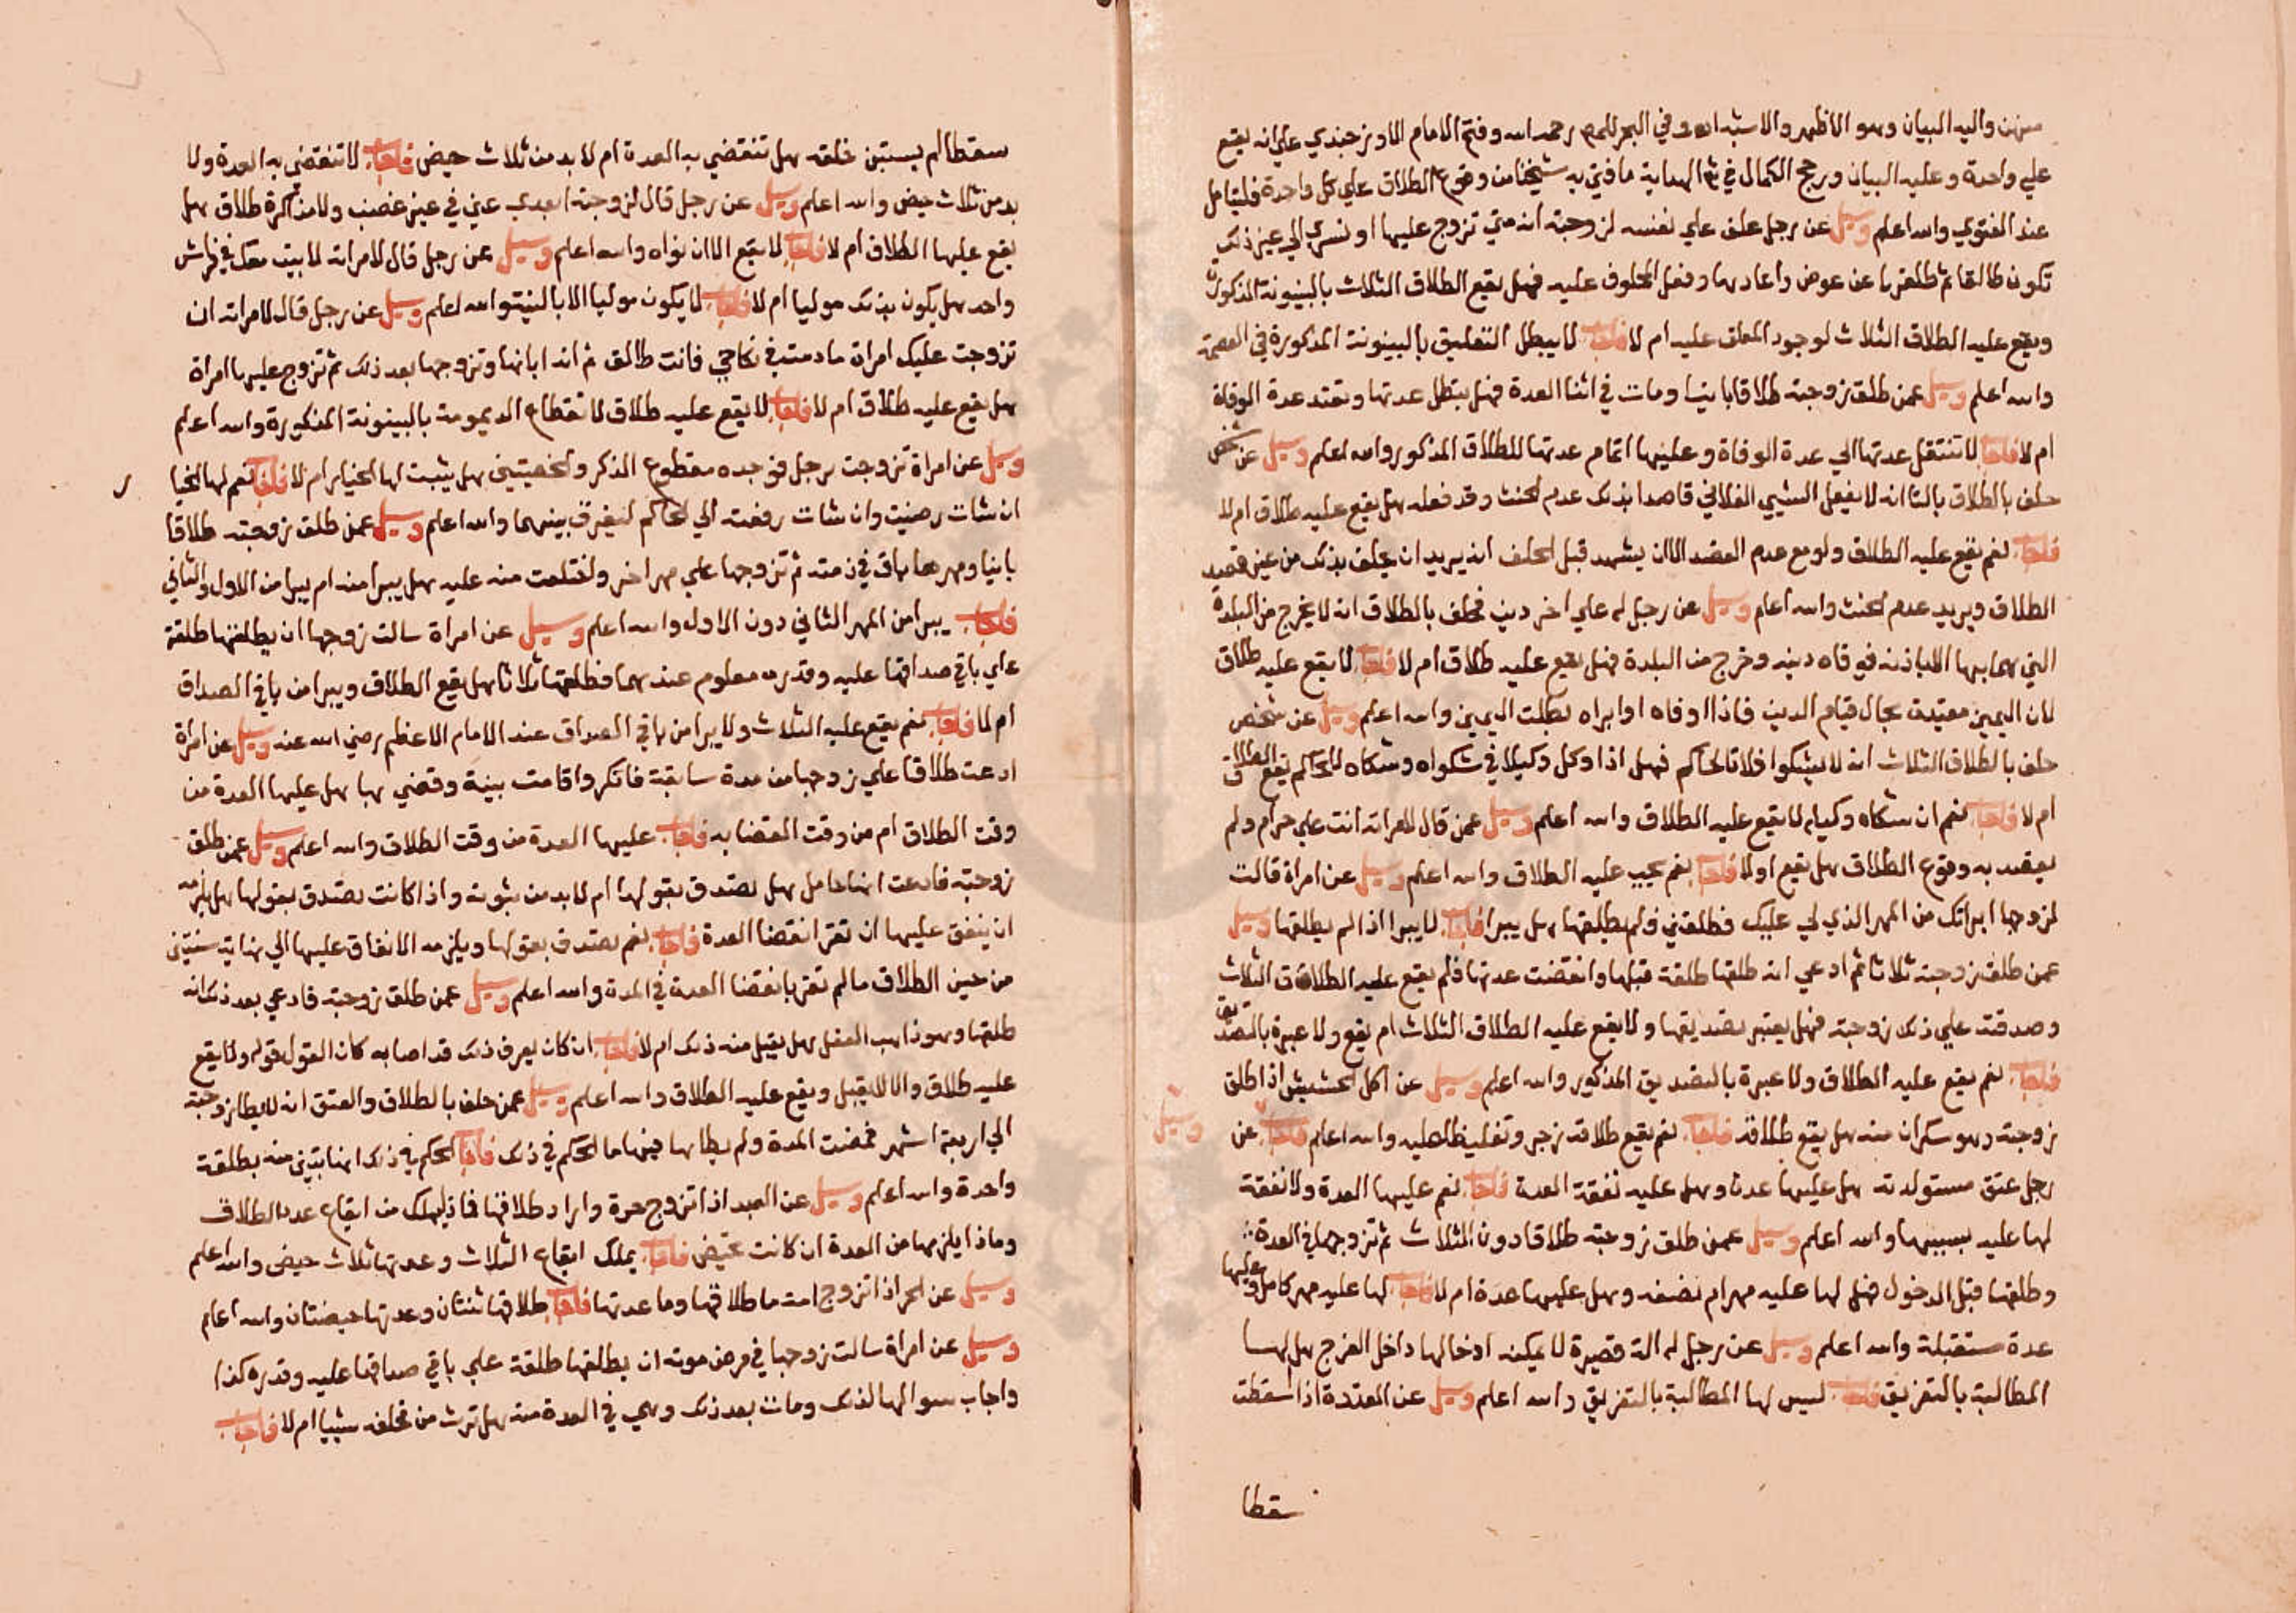 منهن واليه البيان وهو الاظهر والاشبه اه وفي البحر للمص رحمه الله وفتح الامام الاوزجندي علي انه يقع
علي واحدة وعليه البيان ورجح الكمال في شرح الهداية ما فتي به شيخنا من وقوع الطلاق علي كل واحدة فليتامل
عند الفتوي والله اعلم وسيل عن رجل علق علي نفسه لزوجته انه متي تزوج عليها او تسري الي غير ذلك
تكون طالقا ثم طلقها عن عوض واعادها وفعل المحلوف عليه فهل يقع الطلاق الثلاث بالبينونة المذكورة
ويقع عليه الطلاق الثلاث لوجود المعلق عليه ام لا فاجاب لا يبطل التعليق بالبينونة المذكورة في العصمة
والله اعلم وسيل عمن طلق زوجته طلاقا باينا ومات في اثنا العدة فهل يبطل عدتها وتعتد عدة الوفاة
ام لا فاجاب لا تنتقل عدتها الي عدة الوفاة وعليها اتمام عدتها للطلاق المذكور والله اعلم وسيل عن شخص
حلف بالطلاق بالتا انه لا يفعل الشيي الفلاني قاصدا بذلك عدم الحنث وقد فعله هل يقع عليه طلاق ام لا
فاجاب نعم يقع عليه الطلاق ولو مع عدم القصد الا ان يشهد قبل الحلف انه يريد ان يحلف بذلك من غير قصد
الطلاق ويريد عدم الحنث والله اعلم وسيل عن رجل له علي اخر دين فحلف بالطلاق انه لا يخرج من البلدة
التي هما بها الا باذنه فوفاه دينه وخرج من البلدة فهل يقع عليه طلاق ام لا فاجاب لا يقع عليه طلاق
لان اليمين مقيدة بحال قيام الدين فاذا اوفاه او ابراه بطلت اليمين والله اعلم وسيل عن شخص
حلف بالطلاق الثلاث انه لا يشكوا فلانا لحاكم فهل اذا وكل وكيلا في شكواه وشكاه للحاكم يقع الطلاق
ام لا فاجاب نعم ان شكاه وكيله لا يقع عليه الطلاق والله اعلم وسيل عمن قال لامراته انت علي حرام ولم
يقصد به وقوع الطلاق هل يقع او لا فاجاب نعم يجب عليه الطلاق والله اعلم وسيل عن امراة قالت
لزوجها ابراتك من المهر الذي لي عليك فطلقني فلم يطلقها هل يبرا فاجاب لا يبرا اذا لم يطلقها وسيل
عمن طلق زوجته ثلاثا ثم ادعي انه طلقها طلقة قبلها وانقضت عدتها فلم يقع عليه الطلاق الثلاث
وصدقت علي ذلك زوجته فهل يعتبر تصديقها ولا يقع عليه الطلاق الثلاث ام يقع ولا عبرة بالتصديق
فاجاب نعم يقع عليه الطلاق ولا عبرة بالتصديق المذكور والله اعلم وسيل عن اكل الحشيش اذا طلق
زوجته وهو سكران منه هل يقع طلاقه فاجاب نعم يقع طلاقه زجر وتغليظا عليه والله اعلم فاجاب عن
وسيل
رجل عتق مستولدته هل عليها عدة وهل عليه نفقة العدة فاجاب نعم عليها العدة ولا نفقة
لها عليه بسببها والله اعلم وسيل عمن طلق زوجته طلاقا دون الثلاث ثم تزوجها في العدة
وطلقها قبل الدخول فهل لها عليه مهر ام نصفه وهل عليها عدة ام لا فاجاب لها عليه مهر كامل وعليها
عدة مستقبلة والله اعلم وسيل عن رجل له الة قصيرة لا يمكنه ادخالها داخل الفرج هل لها
المطالبة بالتفريق فاجاب ليس لها المطالبة بالتفريق والله اعلم وسيل عن المعتدة اذا اسقطت
سقطا
سقطا لم يستبن خلقه هل تنقضي به العدة ام لا بد من ثلاث حيض فاجاب لا تنقضي به العدة ولا
بد من ثلاث حيض والله اعلم وسيل عن رجل قال لزوجته ابعدي عني في غير غضب ولا مذاكرة طلاق هل
يقع عليها الطلاق ام لا فاجاب لا يقع الا ان نواه والله اعلم وسيل عن رجل قال لامراته لا ابيت معك في فراش
واحد هل يكون بذلك موليا ام لا فاجاب لا يكون موليا الا بالنية والله اعلم وسيل عن رجل قال لامراته ان
تزوجت عليك امراة ما دمت في نكاحي فانت طالق ثم انه ابانها وتزوجها بعد ذلك ثم تزوج عليها امراة
هل يقع عليه طلاق ام لا فاجاب لا يقع عليه طلاق لانقطاع الديمومة بالبينونة المذكورة والله اعلم
وسيل عن امراة تزوجت برجل فوجده مقطوع الذكر والخصيتين هل يثبت لها الخيار ام لا فاجاب نعم لها الخيا
ر
ان شات رضيت وان شات رفعت الي الحاكم ليفرق بينهما والله اعلم وسيل عمن طلق زوجته طلاقا
باينا ومهرها باق في ذمته ثم تزوجها علي مهر اخر واختلعت منه عليه هل يبرا منه ام يبرا من الاول والثاني
فاجاب يبرا من المهر الثاني دون الاول والله اعلم وسيل عن امراة سالت زوجها ان يطلقها طلقة
علي باقي صداقها عليه وقدره معلوم عندهما فطلقها ثلاثا هل يقع الطلاق ويبرا من باقي الصداق
ام لا فاجاب نعم يقع عليه الثلاث ولا يبرا من باقي الصداق عند الامام الاعظم رضي الله عنه وسيل عن امراة
ادعت طلاقا علي زوجها من مدة سابقة فانكر واقامت بينة وقضي بها هل عليها العدة من
وقت الطلاق ام من وقت القضا به فاجاب عليها العدة من وقت الطلاق والله اعلم وسيل عمن طلق
زوجته فادعت انها حامل هل تصدق بقولها ام لا بد من ثبوته واذا كانت تصدق بقولها هل يلزمه
ان ينفق عليها ان تقر انقضا العدة فاجاب نعم تصدق بقولها ويلزمه الانفاق عليها الي نهاية سنتين
من حين الطلاق ما لم تقر بانقضا العدة في المدة والله اعلم وسيل عمن طلق زوجته فادعي بعد ذلك انه
طلقها وهو ذاهب العقل هل يقبل منه ذلك ام لا فاجاب ان كان يعرف ذلك قد اصابه كان القول قوله ولا يقع
عليه طلاق والا لا يقبل ويقع عليه الطلاق والله اعلم وسيل عمن حلف بالطلاق والعتق انه لا يطا زوجته
الي اربعة اشهر فمضت المدة ولم يطاها فيها ما الحكم في ذلك فاجاب الحكم في ذلك انها تبين منه بطلقة
واحدة والله اعلم وسيل عن العبد اذا تزوج حرة واراد طلاقها فماذا يملك من ايقاع عدد الطلاق
وماذا يلزمها من العدة ان كانت تحيض فاجاب يملك ايقاع الثلاث وعدتها ثلاث حيض والله اعلم
وسيل عن الحر اذا تزوج امة ما طلاقها وما عدتها فاجاب طلاقها ثنتان وعدتها حيضتان والله اعلم
وسيل عن امراة سالت زوجها في مرض موته ان يطلقها طلقة علي باقي صداقها عليه وقدره كذا
واجاب سوالها لذلك ومات بعد ذلك وهي في العدة منه هل ترث من مخلفه شييا ام لا فاجاب